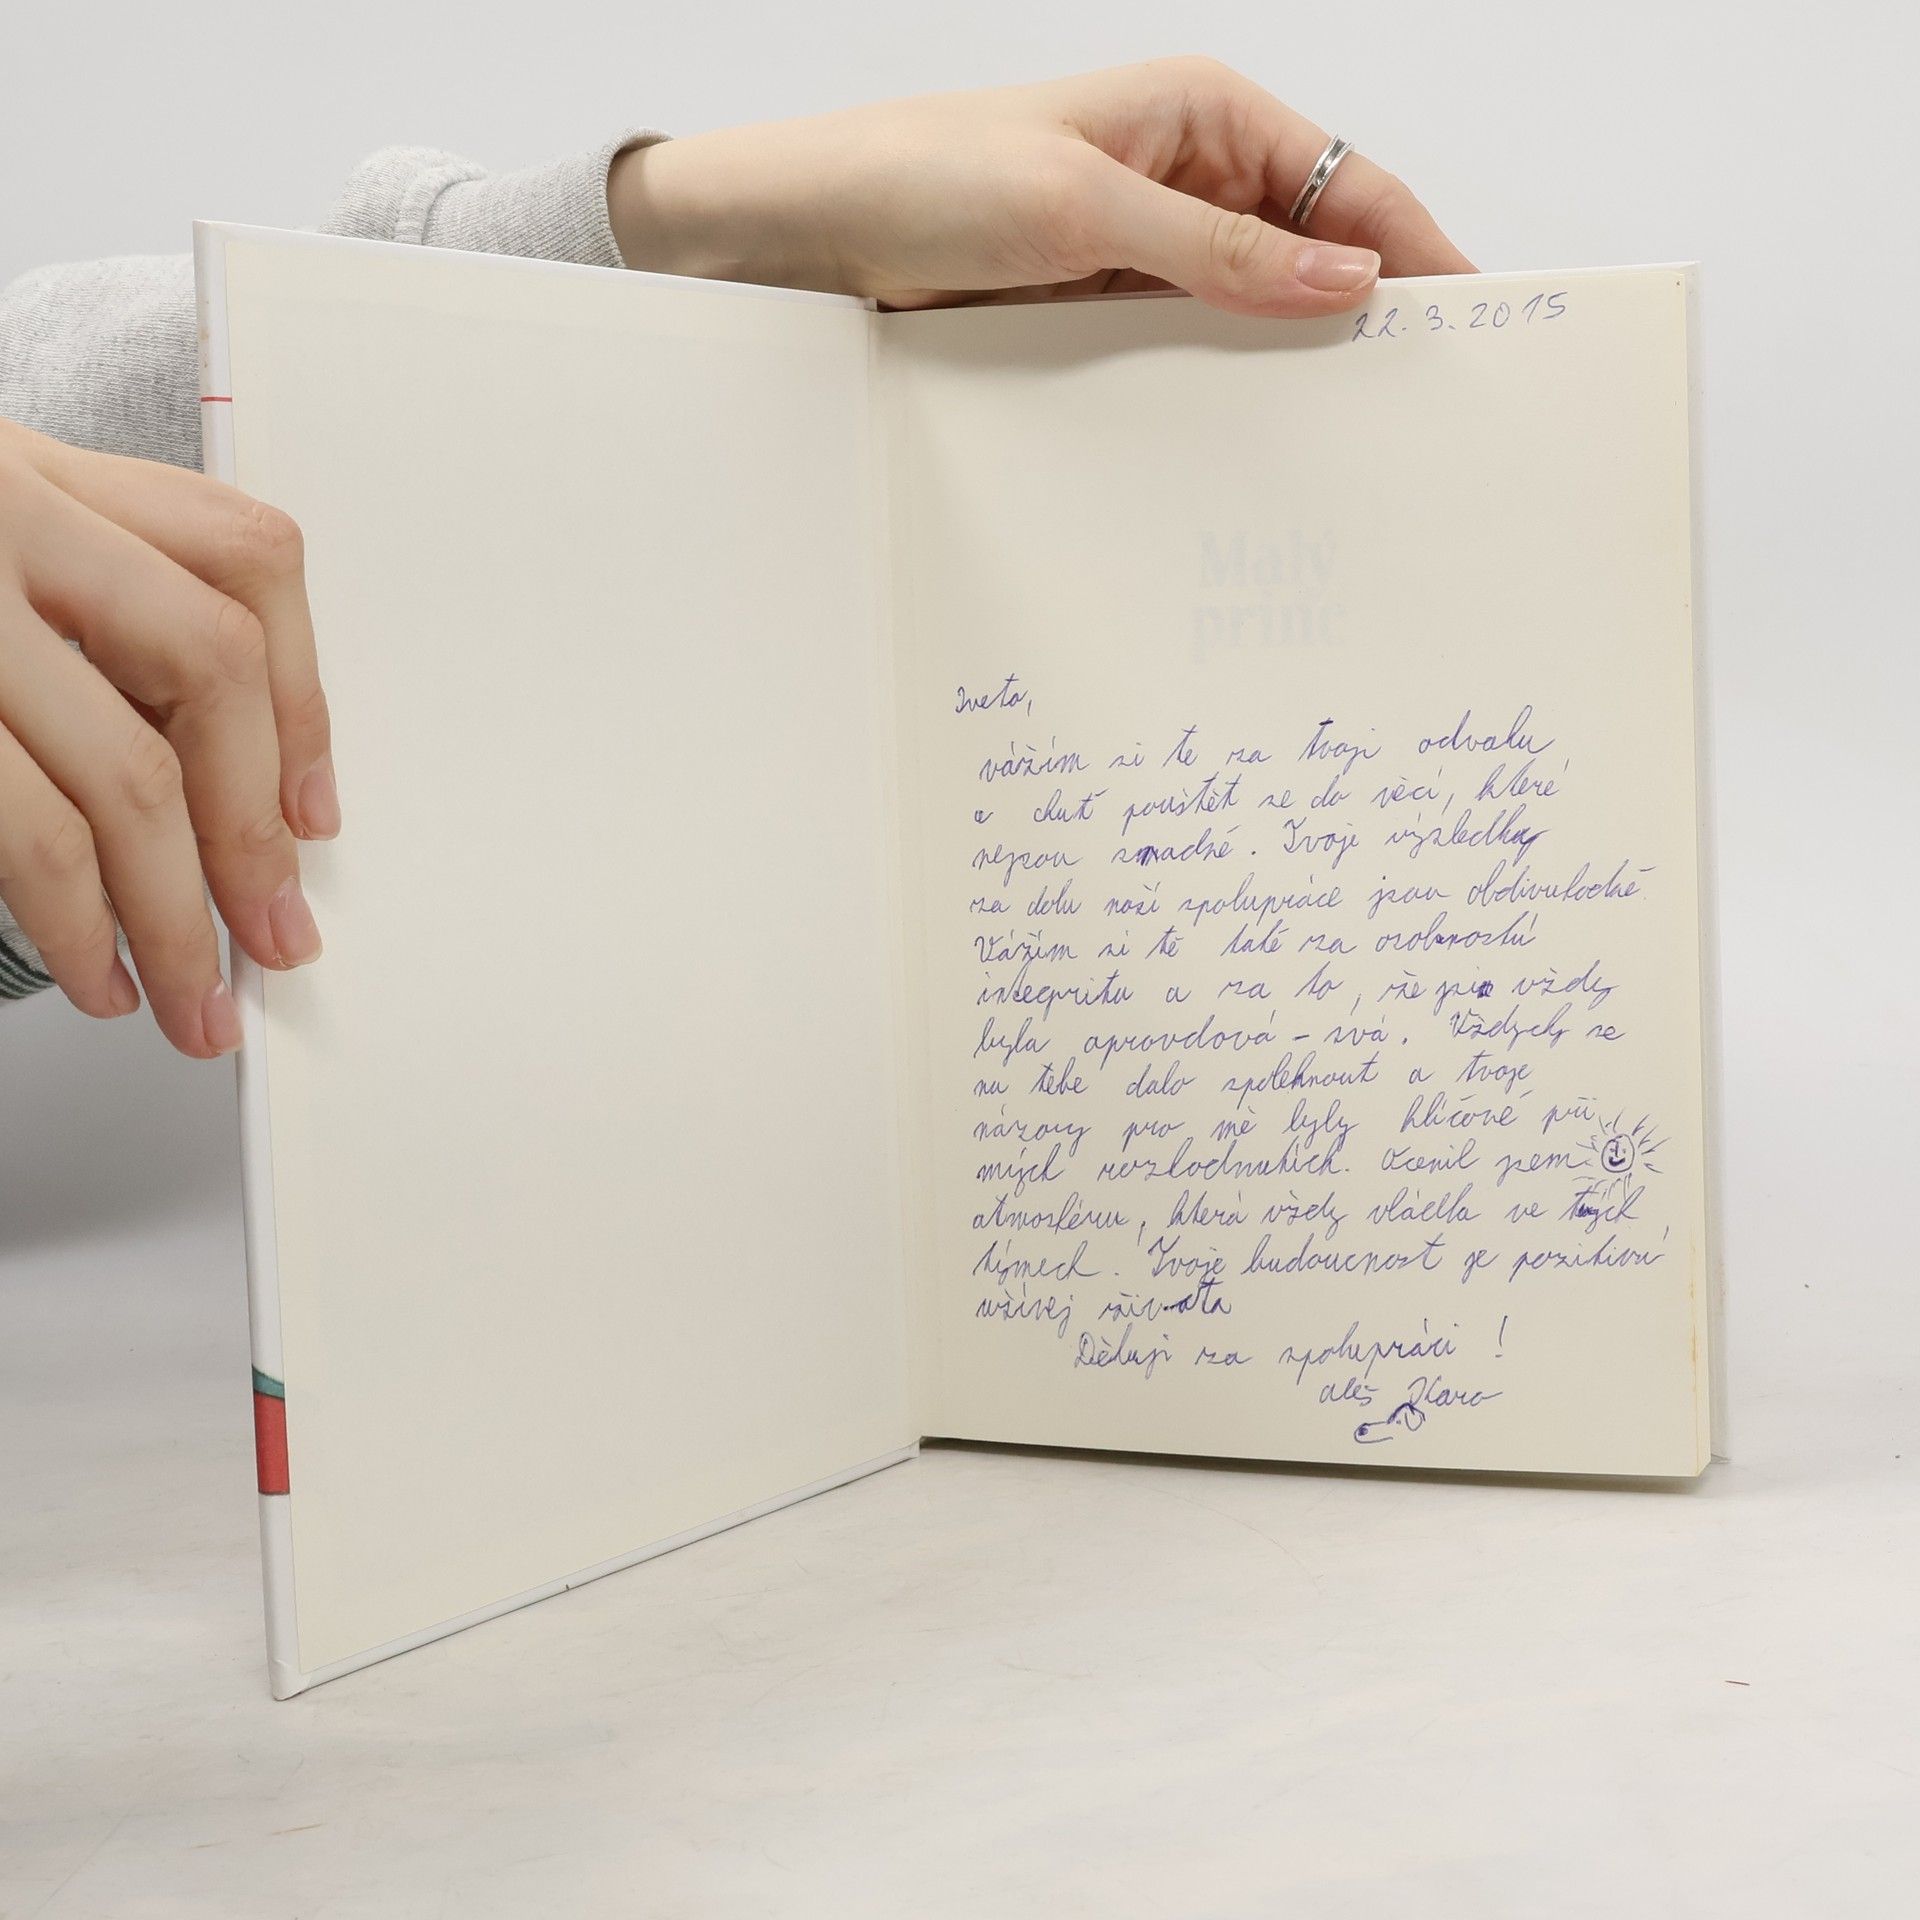 22. 3. 2015
Malý
princ
Iveto,
vážím si tě za tvoji odvahu
a chuť pouštět se do věcí, které
nejsou snadné. Tvoje výsledky
za dobu naší spolupráce jsou obdivuhodné.
Vážím si tě také za osobnostní
integritu a za to, že jsi vždy
byla opravdová - svá. Vždycky se
na tebe dalo spolehnout a tvoje
názory pro mě byly klíčové při
mých rozhodnutích. Ocenil jsem
atmosféru, která vždy vládla ve tvých
týmech. Tvoje budoucnost je pozitivní,
užívej života
Děkuji za spolupráci!
Aleš